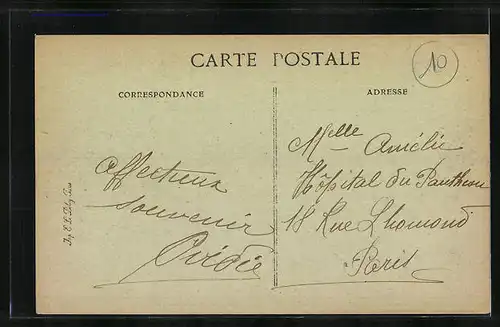 CARTE POSTALE
10
CORRESPONDANCE
ADRESSE
Affectueux
souvenir
Ovidie
Melle Amélie
Hôpital du Panthéon
18 Rue Lhomond
Paris